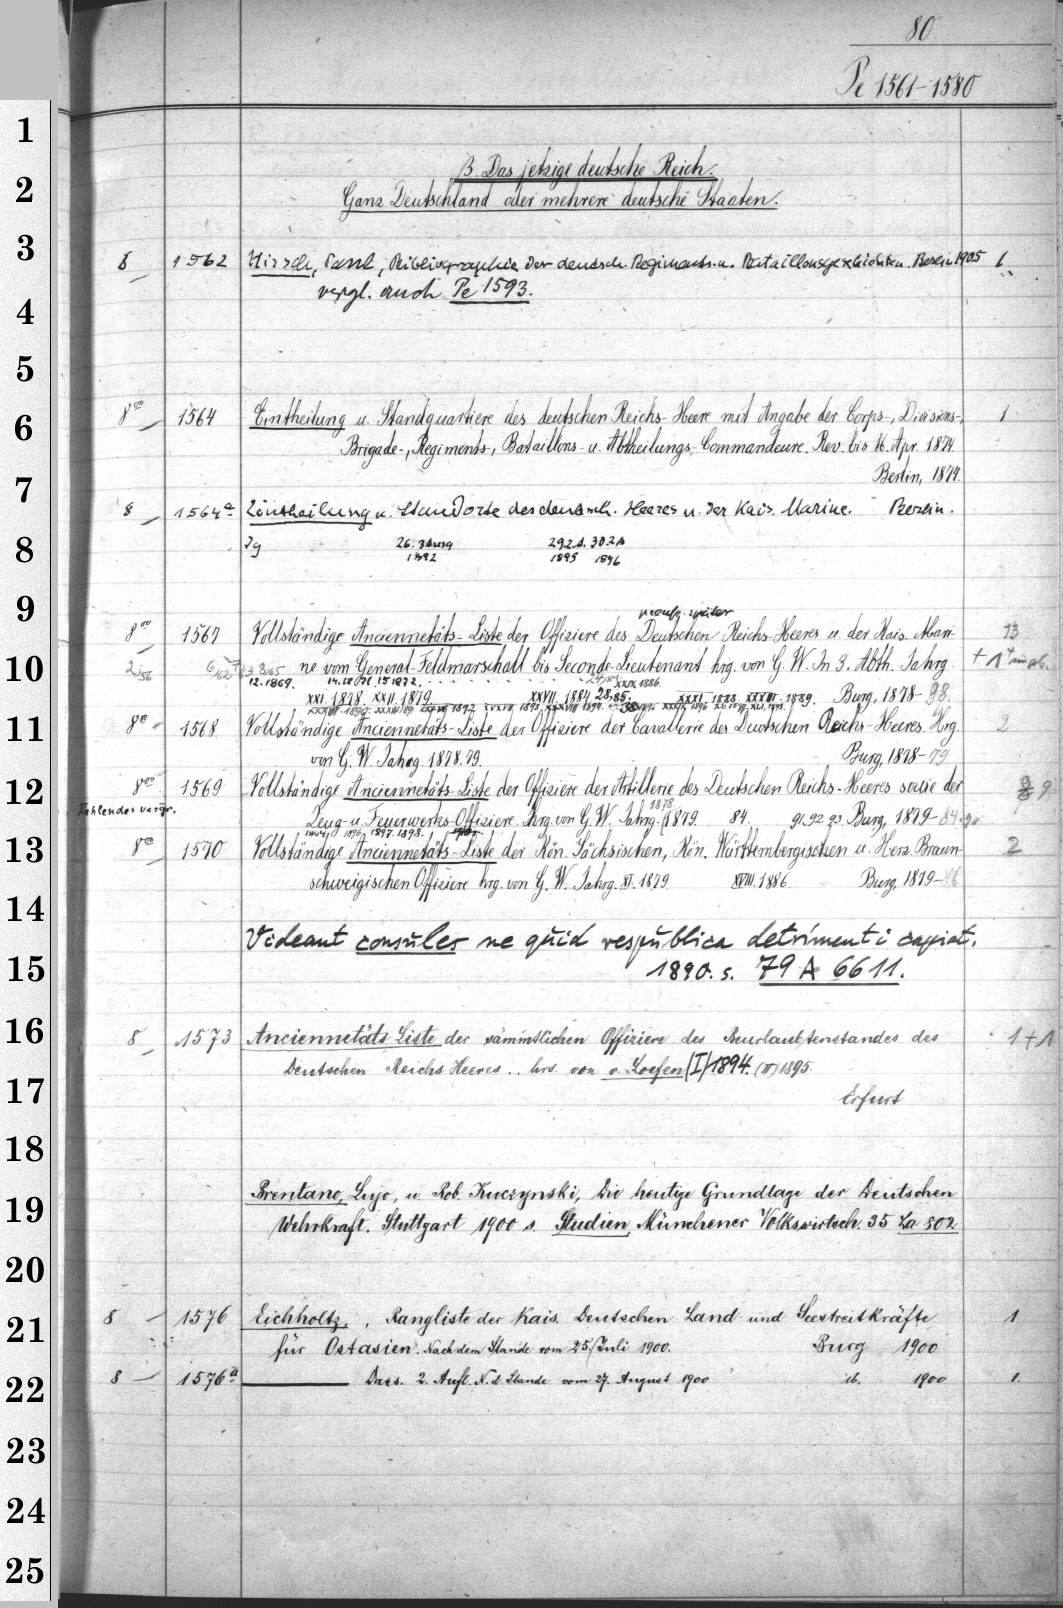 80
Pe 1561-1580
1
B. Das jetzige deutsche Reich.
2
Ganz Deutschland oder mehrere deutsche Staaten.
3
8 1562 Hirsch, Paul, Bibliographie der deutsch. Regiments- u. Bataillonsgeschichten. Berlin 1905 1
vergl. auch Pe 1593.
4
5
6
8vo 1564 Eintheilung u. Standquartiere des deutschen Reichs-Heere mit Angabe der Corps-, Divisions-, 1
Brigade-, Regiments-, Bataillons- u. Abtheilungs-Commandeure. Rev. bis 16. Apr. 1874.
7
Berlin, 1874.
8 1564a Eintheilung u. Standorte des deutsch. Heeres u. der Kais. Marine. Berlin.
8
Jg 26. 29.2.A. 30.2A
1892 1895 1896
9
8vo 1567 Vollständige Anciennetäts-Liste der Offiziere des Deutschen Reichs-Heeres u. der Kais. Mari- 13
10
ne vom General-Feldmarschall bis Seconde-Lieutenant hrg. von G. W. In 3. Abth. Jahrg. + 1
12.1869. 15.1872. XXIX 1886.
XXI. 1878. XXII. 1879. XXVII. 1884. 28.85. XXXI. 1888. 1889. Burg, 1878-98.
11
8vo 1568 Vollständige Anciennetäts-Liste der Offiziere der Cavallerie des Deutschen Reichs-Heeres. Hrg. 2
von G. W. Jahrg. 1878.79. Burg, 1878-79
12
8vo 1569 Vollständige Anciennetäts-Liste der Offiziere der Artillerie des Deutschen Reichs-Heeres sowie der 9
Fehlendes vergr.
Zeug- u. Feuerwerks-Offiziere. hrg. von G. W. Jahrg. 1878 1879. 84. 91.92 93 Burg, 1879-84
1896. 1897. 1898.
13
8vo 1570 Vollständige Anciennetäts-Liste der Kön. Sächsischen, Kön. Württembergischen u. Herz. Braun- 2
schweigischen Offiziere hrg. von G. W. Jahrg. XI. 1879. XVIII. 1886. Burg, 1879-86
14
Videant consules ne quid respublica detrimenti capiat.
15
1890. s. 79 A 6611.
16
8 1573 Anciennetäts Liste der sämmtlichen Offiziere des Beurlaubtenstandes des 1+1
Deutschen Reichs Heeres .. hrs. von v. Loefen (I) 1894. (II) 1895.
17
Erfurt
18
19
Brentano, Lujo, u. Rob. Kuczynski, Die heutige Grundlage der Deutschen
Wehrkraft. Stuttgart 1900 s. Studien, Münchener Volkswirtsch. 35 La 802
20
21
8 1576 Eichholtz, . Rangliste der Kais. Deutschen Land und Seestreitkräfte 1
für Ostasien. Nach dem Stande vom 25. Juli 1900. Burg 1900
22
8 1576a Dass. 2. Aufl. N. d. Stande vom 27. August 1900 ib. 1900 1.
23
24
25